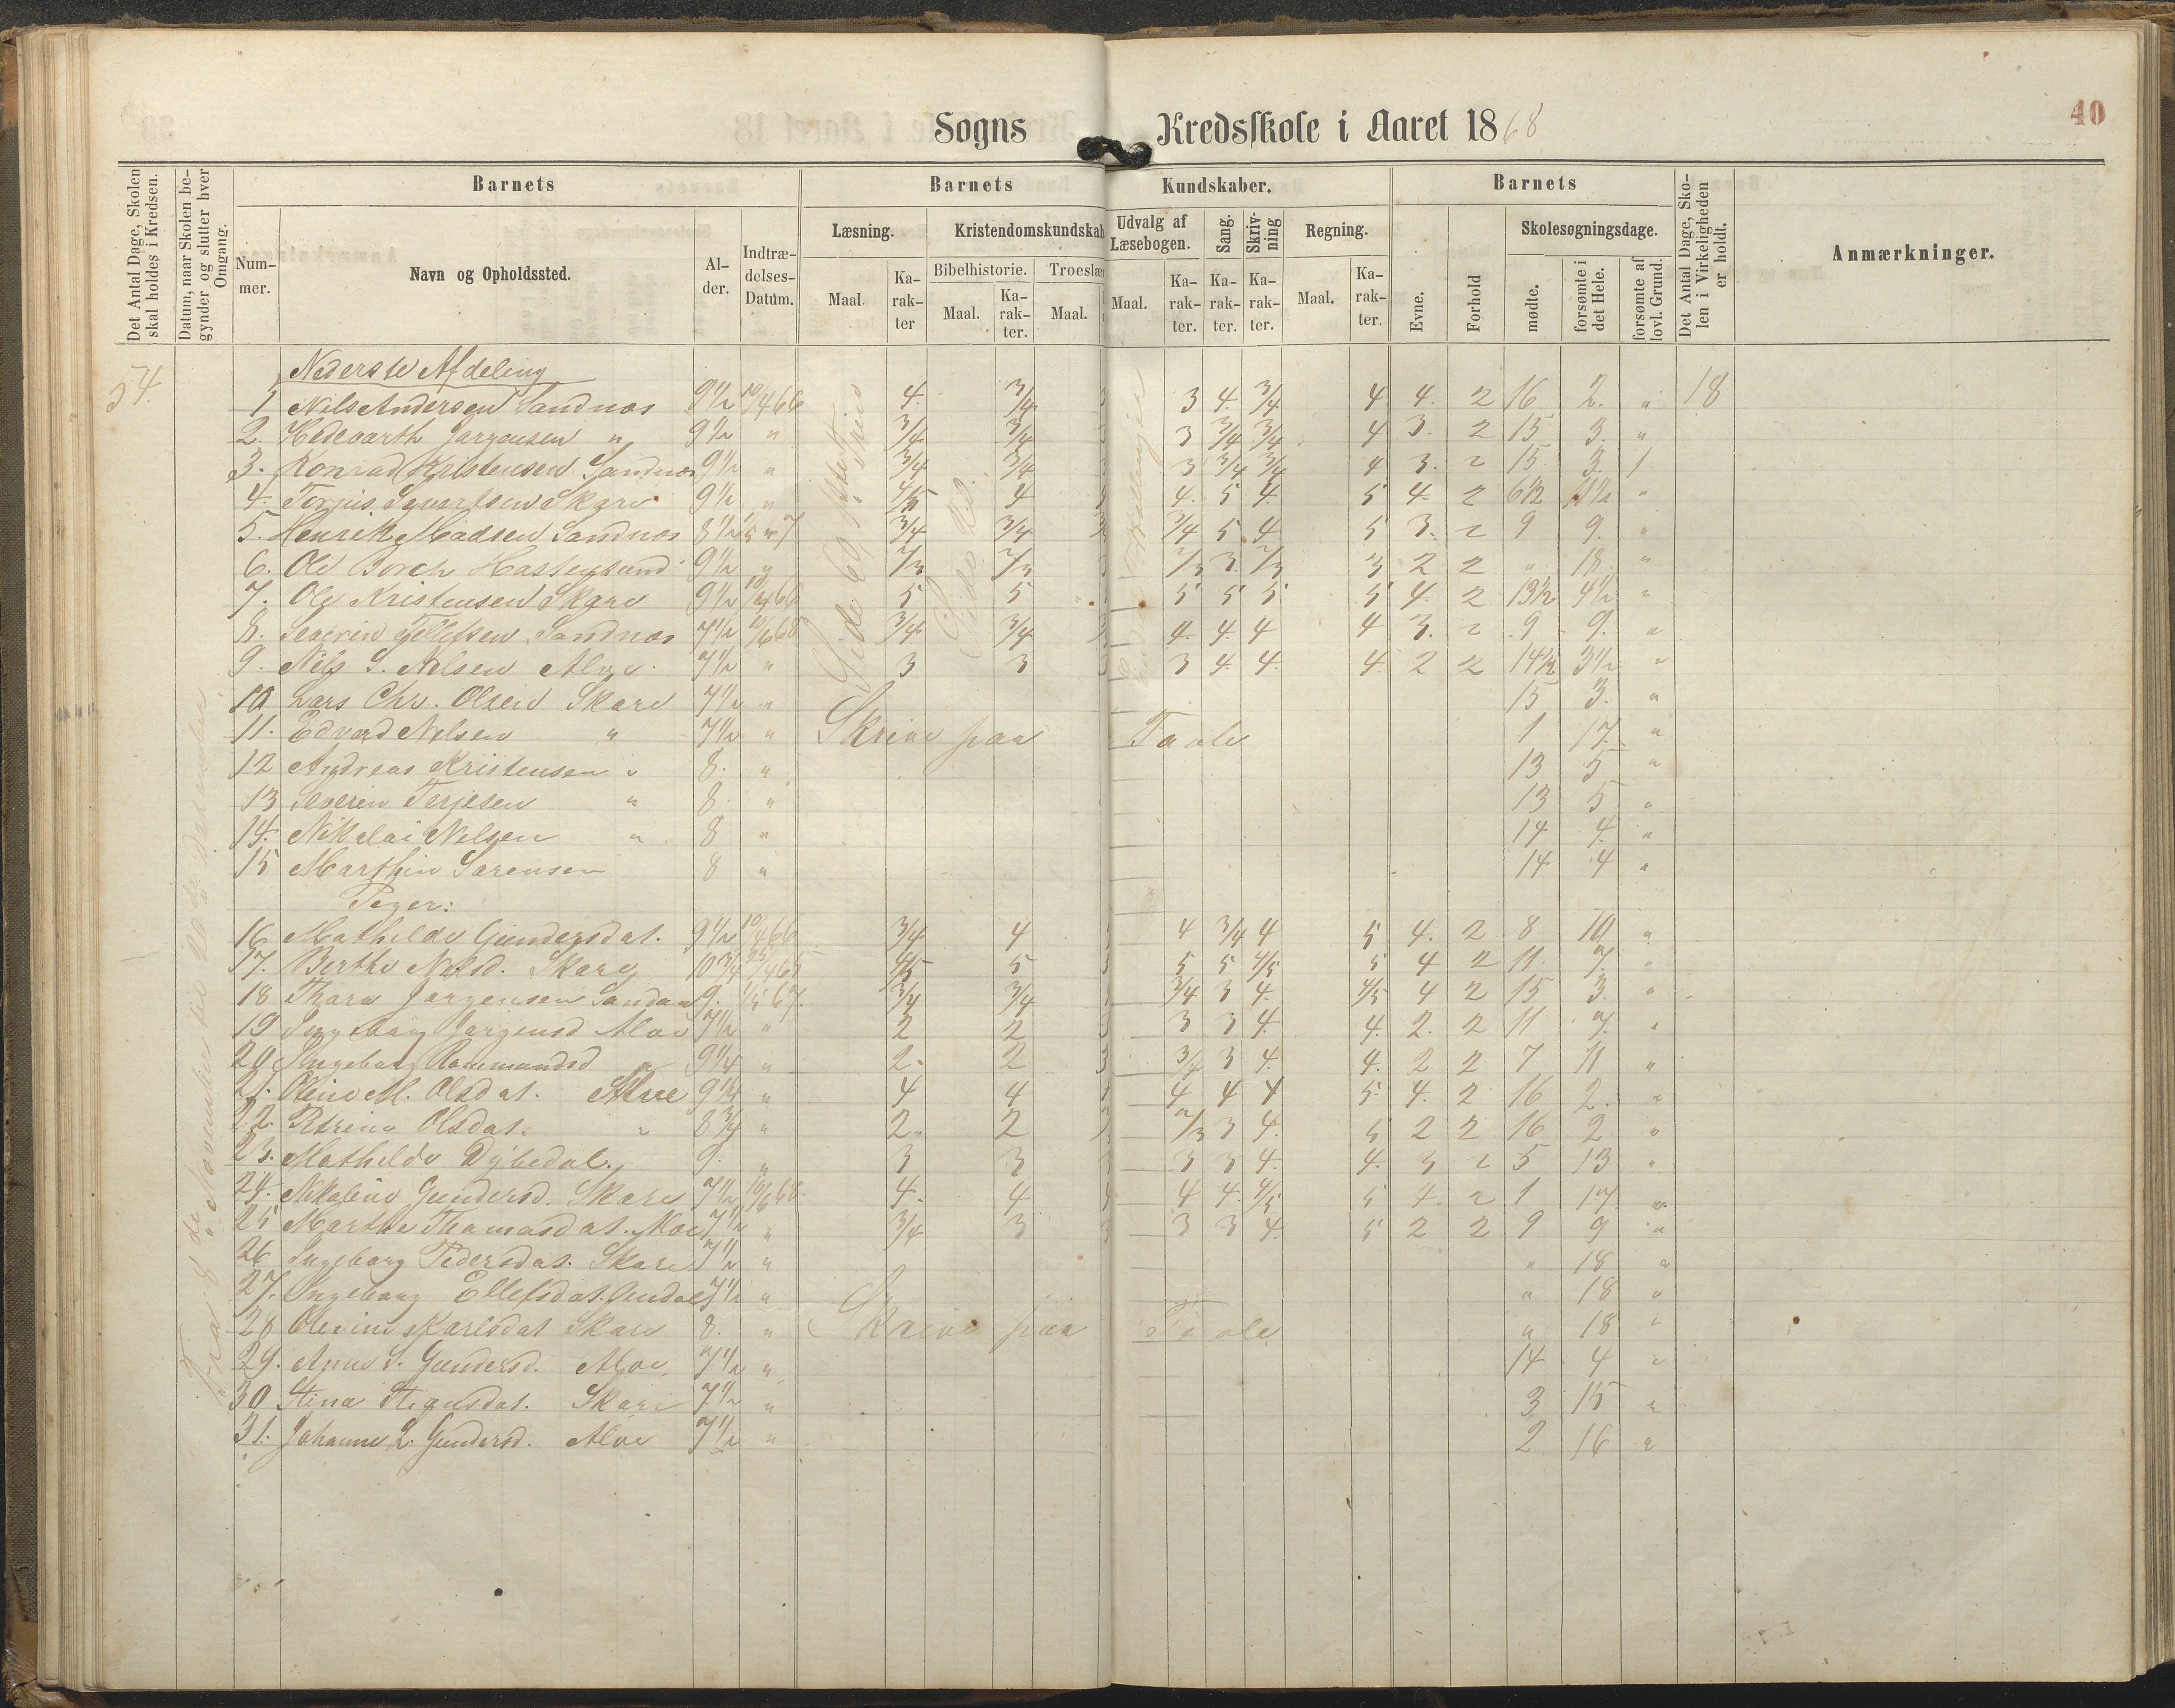 40
Sogns Kredsskole i Aaret 1868
Det Antal Dage, Skolen skal holdes i Kredsen.
Datum, naar Skolen begynder og slutter hver Omgang.
Barnets
Nummer.
Navn og Opholdssted.
Alder.
Indtrædelses-Datum.
Barnets Kundskaber.
Læsning.
Maal.
Karakter
Kristendomskundskab
Bibelhistorie.
Maal.
Karakter.
Troeslær
Maal.
Udvalg af Læsebogen.
Maal.
Karakter.
Sang.
Karakter.
Skrivning
Karakter.
Regning.
Maal.
Karakter.
Barnets
Evne.
Forhold
Skolesøgningsdage.
mødte.
forsømte i det Hele.
forsømte af lovl. Grund.
Det Antal Dage, Skolen i Virkeligheden er holdt.
Anmærkninger.
54.
Nederste Afdeling
1 Nils Andersen Sandnæs 9½ 10/4 66 4. 3/4 3 4. 3/4 4 4. 2 16 2. " 18
2. Jørgensen " 9½ " 3/4 3/4 3 3/4 3/4 4 3. 2 15 3. "
3. Konrad Kristensen Sandnæs 9½ " 3/4 3/4 3 3/4 3/4 4 3. 2 15 3. 1
4. Terjus Sevartsen Skare 9½ " 4/5 4 4. 5 4. 5 4. 2 6½ 11½ "
5. Henrik Madsen Sandnæs 8½ 3/4 3/4 3/4 5 4 5 3. 2 9 9. "
6. Ole Borch Hastensund 9½ " 2/3 2/3 2/3 3. 2/3 3 2 2 " 18 "
7. Ole Kristensen Skare 9½ 10/4 66 5 5 5 5 5 5 4 2 13½ 4½ "
8. Severin Tellefsen Sandnæs 7½ 10/6 68 3/4 3/4 4. 4. 4 4 3. 2 9 9. "
9. Nils S. Nilsen Alve 7½ " 3 3 3 4. 4. 4. 2 2 14½ 3½ "
10 Lars Chr. Olsen Skare 7½ " 15 3. "
11. Edvard Nilsen " 7½ " Skrive paa Tavle 1 17. "
12 Andreas Kristensen " 8. " 13 5 "
13 Severin Terjesen " 8. " 13 5 "
14. Nikolai Nilsen " 8 " 14 4. "
15 Marthin Sørensen 8 " 14 4 "
Piger:
16 Mathilde Gundersdat. 9½ 10/4 66 3/4 4 4 3/4 4 5 4. 2 8 10 "
17. Berthe Nilsd. Skare 10¾ 25/4 65 4/5 5 5 5 4/5 5 4 2 11. 7. "
18 Thara Jørgensen 9. 1/5 67. 3/4 3/4 3/4 3 4. 4/5 4 2 15 3. "
19 Ingeborg Jørgensd Alve 7½ " 2 2 3 3 4. 4. 2. 2 11 7. "
20 Ingeborg Rommundsd " 9¼ " 2. 2 3 3/4 3 4. 4. 2 2 7 11 "
21. Oline M. Olsdat. Alve 9¼ " 4 4 4 4 4 5. 4. 2 16 2. "
22. Petrine Olsdat. " 8¾ " 2. 2 2/3 3 4. 5 2 2 16 2 "
23. Mathilde Dybedal. 9. " 3 3 3 3 4. 4. 3 2 5 13 "
24. Nikoline Gundersd. Skare 7½ 10/6 68. 4. 4 4 4. 4/5 5 4. 2 1 17. "
25 Marthe Thomasdat. Alve 7½ " 3/4 3 3 3 3 4. 5 2 2 9 9 "
26 Ingeborg Pedersdat. Skare 7½ " " 18 "
27. Ingeborg Ellefsdat. 7½ " " 18 "
28 Olevine Karlsdat Skare 8. " Skrive paa Tavle " 18 "
29. Anne S. Gundersd. Alve 7½ " 14 4 "
30 Stina Skare 7½ " 3 15 "
31. Johanne L. Gundersd. Alve 7½ " 2 16 "